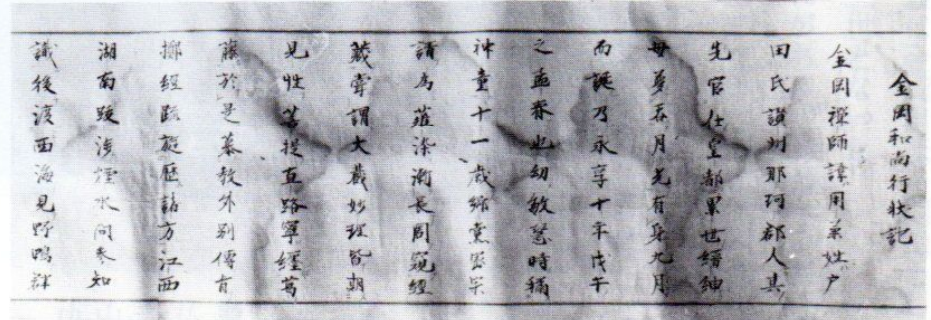 金岡和尚行状記
金岡禅師諱用兼姓戸
田氏讃州那珂郡人其
先官仕皇都累世縉紳
母夢呑月光有身九月
而誕乃永享十年戊午
之孟春也幼敏慧時稱
神童十一歳師業密宗
請為薙染漸長周窺經
藏嘗謂大藏妙理皆朝
見性菩提直路寧經葛
藤於是慕教外別傳有
擲經頤疑歴諸方江西
湖南跋渉煙水問参知
識後渡西海見野鴨群